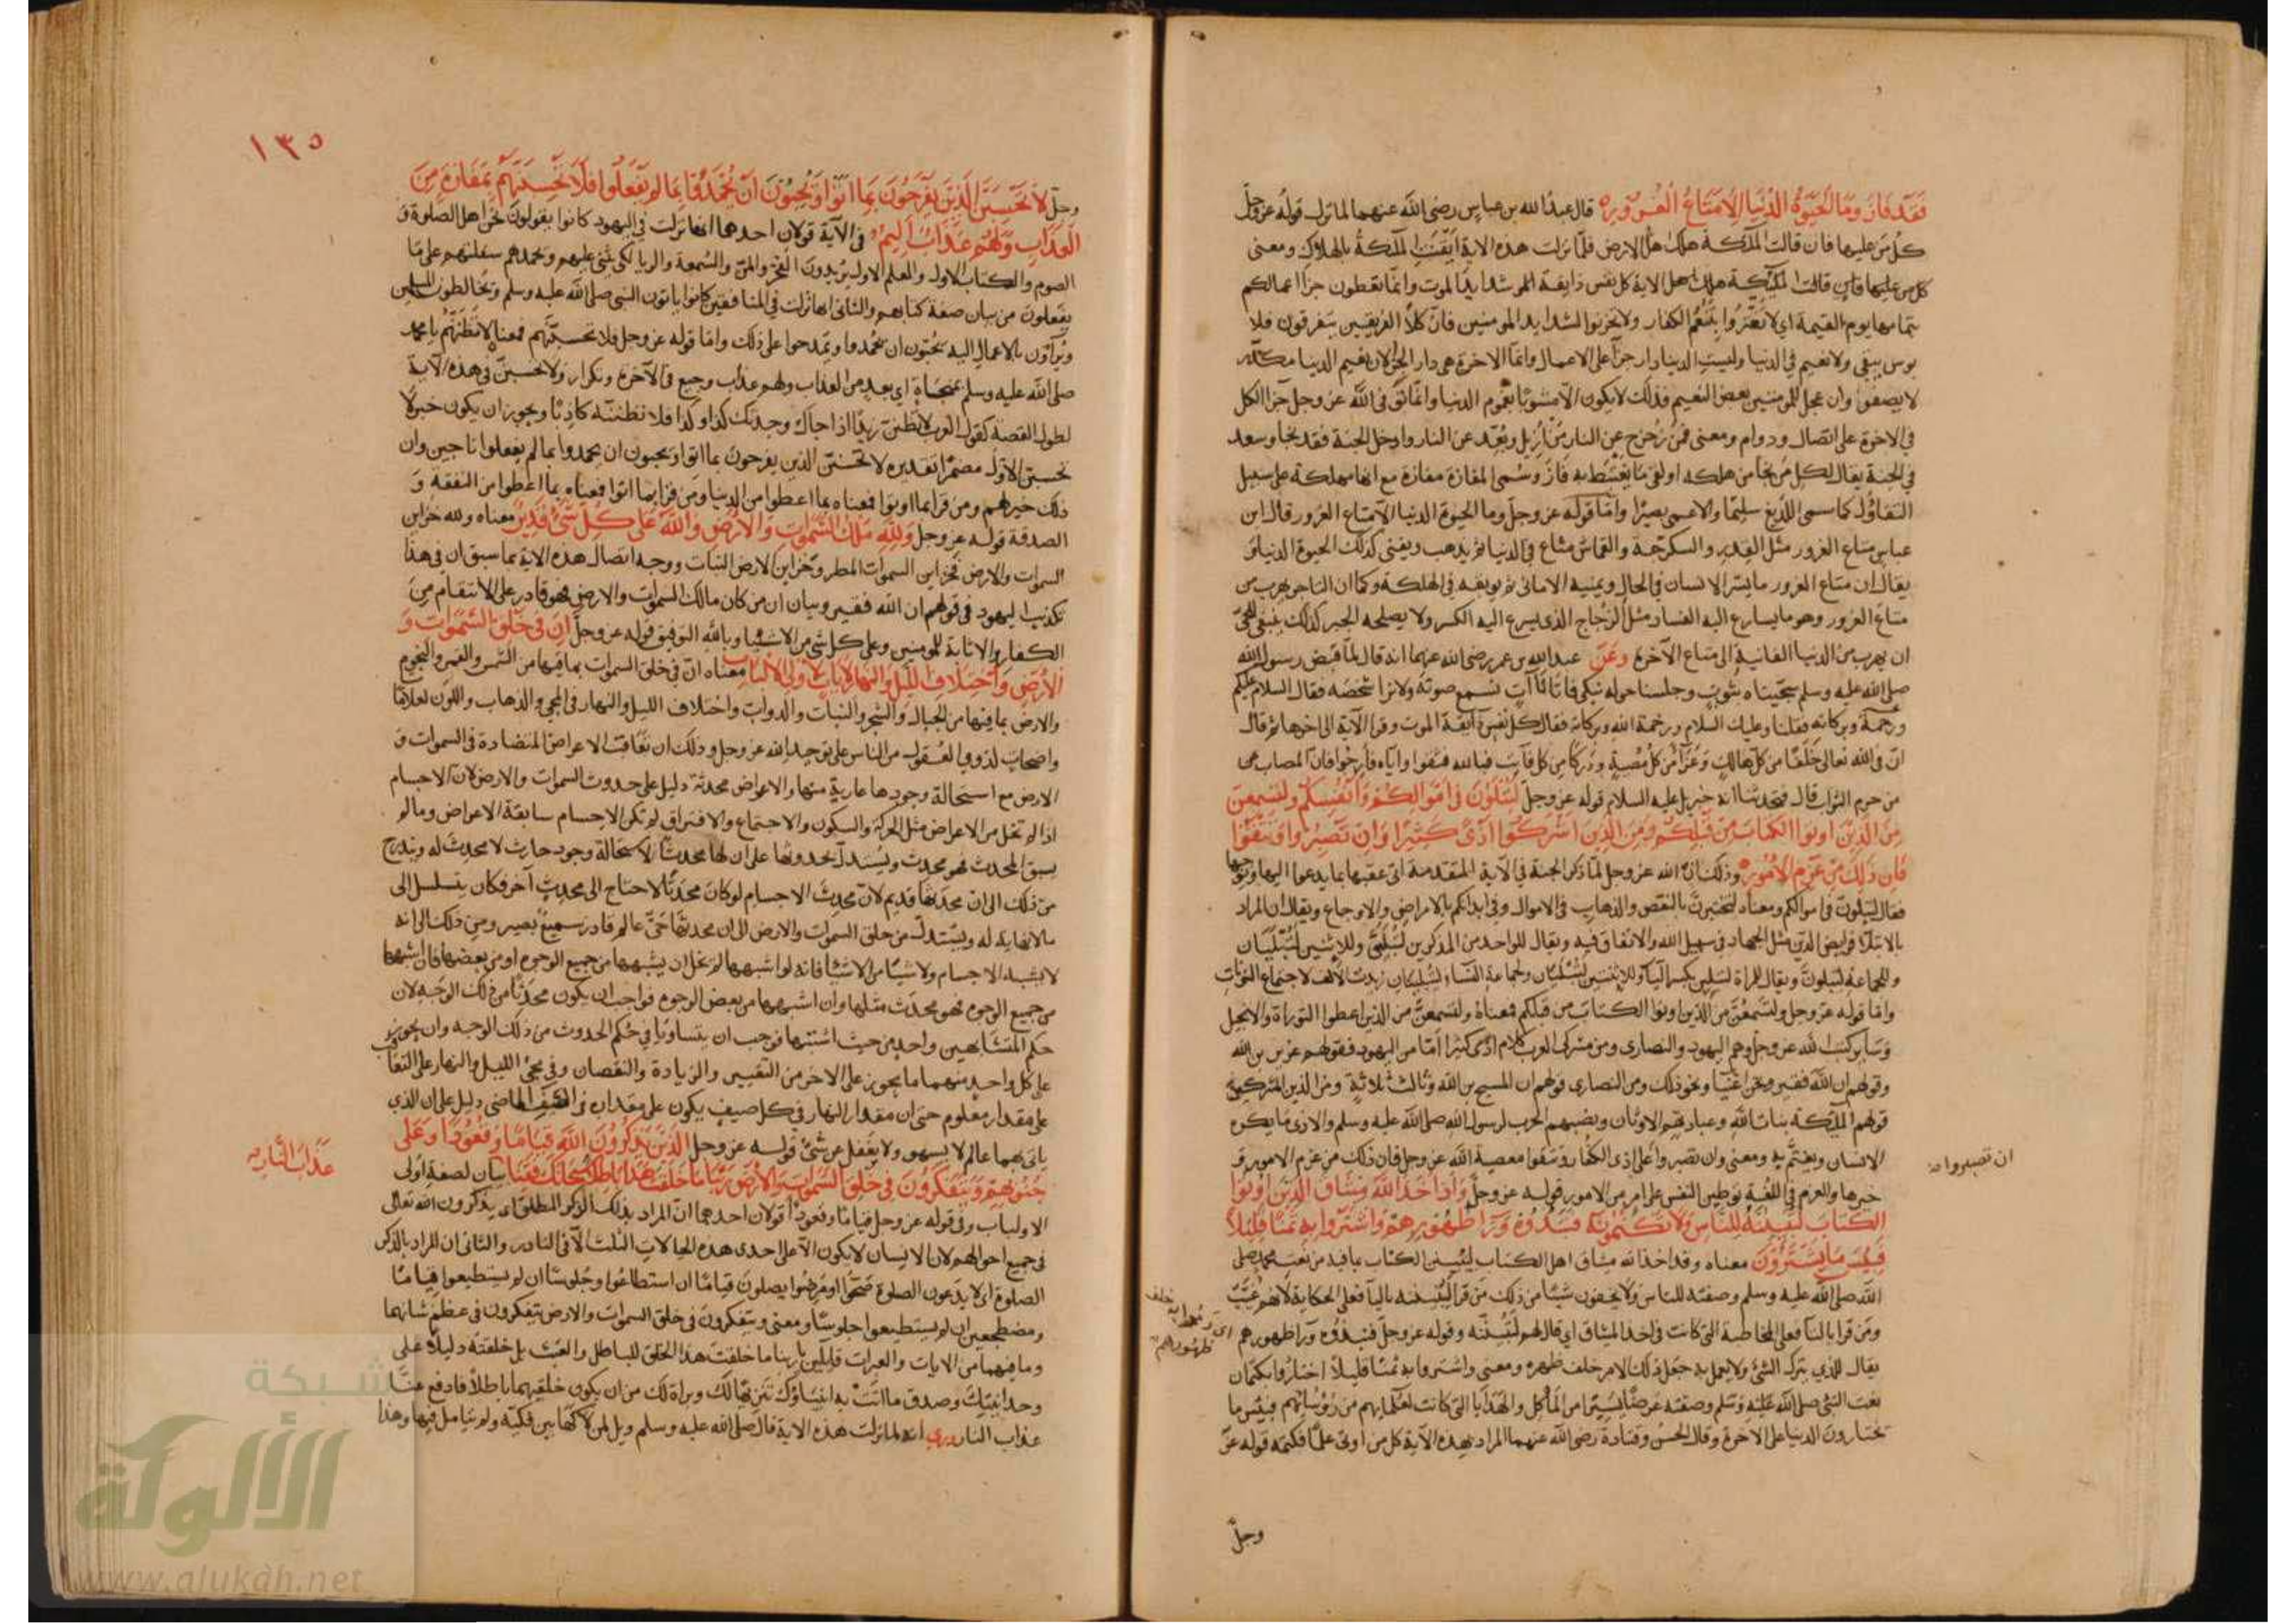 فَقَد فَازَ وَمَا الْحَيَوةُ الدُّنيَا إِلَّا مَتَاعُ الْغُرُورِ قال عبد الله بن عباس رضى الله عنهما لما نزل قوله عز وجل
كل من عليها فان قالت الملئكة هلك اهل الارض فلما نزلت هذه الاية ايقنت الملئكة بالهلاك ومعنى
كل من عليها فان قالت الملئكة هلك اهل الاية كل نفس ذايقة الموت شدايد الموت وانما تعطون جزا اعمالكم
بتمامها يوم القيمة اي لا تغتروا بتنعم الكفار ولا تحزنوا لشدايد المومنين فان كلا الفريقين يتفرقون فلا
بوس يبقى ولا نعيم في الدنيا وليست الدنيا دار جزآ على الاعمال وانما الاخرة هي دار الجزا لان نعيم الدنيا مكدر
لا يصفوا وان عجل للمومنين بعض النعيم فذلك لا يكون الا مشوبا بغموم الدنيا وانما توفى الله عز وجل جزا الكل
في الاخرة على اتصال ودوام ومعنى فمن زحزح عن النار من ازيل وبعد عن النار وادخل الجنة فقد نجا وسعد
في الجنة يقال لكل من نجا من هلكه او لقى ما يغتبط به فاز وسمى المفازة مفازة مع انها مهلكة على سبيل
التفاؤل كما سمى اللديغ سليما والاعمى بصيرا واما قوله عز وجل وما الحيوة الدنيا الا متاع الغرور قال ابن
عباس متاع الغرور مثل القدر والسكرجة والقماش متاع في الدنيا ثم يذهب ويفنى كذلك الحيوة الدنيا
يقال ان متاع الغرور ما يسر الانسان في الحال ويمنيه الامانى ثم يوقعه في الهلكة وكما ان التاجر يهرب من
متاع الغرور وهو ما يسارع اليه الفساد مثل الزجاج الذى يسرع اليه الكسر ولا يصلحه الجبر كذلك ينبغى
ان يهرب من الدنيا الفانية الى متاع الآخرة وعن عبد الله بن عمر رضى الله عنهما انه قال لما قبض رسول الله
صلى الله عليه وسلم سجيناه بثوب وجلسنا حوله نبكى فاتانا آت نسمع صوته ولا نرا شخصه فقال السلام عليكم
ورحمة وبركاته فقلنا وعليك السلام ورحمة الله وبركاته فقال كل نفس ذآيقة الموت وقرا الآية الى اخرها ثم قال
ان فى الله تعالى خلفا من كل هالك وعزآ من كل مصيبة ودركا من كل فآيت فبالله فثقوا واياه فارجوا فان المصاب من
من حرم الثواب قال فتحدثنا انه جبريل عليه السلام قوله عز وجل لَتُبْلَوُنَّ فِى أَمْوَالِكُمْ وَأَنْفُسِكُمْ وَلَتَسْمَعُنَّ
مِنَ الَّذِينَ أُوتُوا الْكِتَابَ مِنْ قَبْلِكُمْ وَمِنَ الَّذِينَ أَشْرَكُوا أَذًى كَثِيرًا وَإِنْ تَصْبِرُوا وَتَتَّقُوا
فَإِنَّ ذَلِكَ مِنْ عَزْمِ الْأُمُورِ وذلك ان الله عز وجل لما ذكر الجنة في الآية المتقدمة اتى عقبها بما يدعوا اليها
فقال لتبلون فى اموالكم ومعناه لتختبرن بالنقص والذهاب فى الاموال وفى ابدانكم بالامراض والاوجاع ويقال ان المراد
بالابتلاء فرايض الدين مثل الجهاد فى سبيل الله والانفاق فيه ويقال للواحد من المذكرين لتبلين وللاثنين لتبليان
وللجماعة لتبلون ويقال للمراة لتبلين بكسر اليآ وللاثنتين لتبليان ولجماعة النساء لتبلينان زيدت الالف لاجتماع النونات
واما قوله عز وجل ولتسمعن من الذين اوتوا الكتاب من قبلكم فمعناه ولتسمعن من الذين اعطوا التوراة والانجيل
وساير كتب الله عز وجل وهم اليهود والنصارى ومن مشركى العرب كلام اذى كثيرا اما من اليهود فقولهم عزير بن الله
وقولهم ان الله فقير ونحن اغنيآ ونحو ذلك ومن النصارى قولهم ان المسيح بن الله وثالث ثلاثة ومن الذين المشركين
قولهم الملئكة بنات الله وعبادتهم الاوثان ونصبهم الحرب لرسول الله صلى الله عليه وسلم والاذى ما يكره
الانسان ويغتم به ومعنى وان تصبروا على اذى الكفار وتتقوا معصية الله عز وجل فان ذلك من عزم الامور
ان تصبروا
خيرها والعزم فى اللغة توطين النفس على امر من الامور قوله عز وجل وَإِذْ أَخَذَ اللَّهُ مِيثَاقَ الَّذِينَ أُوتُوا
الْكِتَابَ لَتُبَيِّنُنَّهُ لِلنَّاسِ وَلَا تَكْتُمُونَهُ فَنَبَذُوهُ وَرَاءَ ظُهُورِهِمْ وَاشْتَرَوْا بِهِ ثَمَنًا قَلِيلًا
فَبِئْسَ مَا يَشْتَرُونَ معناه وقد اخذ الله ميثاق اهل الكتاب ليبينن الكتاب بما فيه من نعت محمد صلى
الله صلى الله عليه وسلم وصفته للناس ولا يخفون شيئا من ذلك من قرا ليبيننه باليآ فعلى الحكاية لانهم غيب
ومن قرا بالتا فعلى المخاطبة التى كانت فى اخذ الميثاق اي قال لهم لتبيننه وقوله عز وجل فنبذوه ورا ظهورهم
يقال للذي يترك الشئ ولا يعمل به جعل ذلك الامر خلف ظهره ومعنى واشتروا به ثمنا قليلا اختاروا بكتمان
نعت النبى صلى الله عليه وسلم وصفته عرضا يسيرا من المأكل والهدايا التى كانت لعلمايهم من رؤسائهم فبئس ما
تختارون الدنيا على الاخرة وقال الحسن وقتادة رضى الله عنهما المراد بهذه الآية كل من اوتى علما فكتمه قوله عز
وجل
١٣٥
وجل لَا تَحْسَبَنَّ الَّذِينَ يَفْرَحُونَ بِمَا أَتَوْا وَيُحِبُّونَ أَنْ يُحْمَدُوا بِمَا لَمْ يَفْعَلُوا فَلَا تَحْسَبَنَّهُمْ بِمَفَازَةٍ مِنَ
الْعَذَابِ وَلَهُمْ عَذَابٌ أَلِيمٌ فى الآية قولان احدهما انها نزلت في اليهود كانوا يقولون نحن اهل الصلوة و
الصوم والكتاب الاول والعلم الاول يريدون الفخر والسمعة والريا لكى يثنى عليهم ويحمدهم سفلتهم على ما
يفعلون من بيان صفة كتابهم والثانى انها نزلت فى المنافقين كانوا ياتون النبى صلى الله عليه وسلم ويخالطون المسلمين
ويراؤن بالاعمال اليه يحبون ان يحمدوا ويمدحوا على ذلك واما قوله عز وجل فلا تحسبنهم فمعناه لا تظنهم يا محمد
صلى الله عليه وسلم بمنجاة اي بعيد من العذاب ولهم عذاب وجيع فى الآخرة وتكرار ولا تحسبن فى هذه الآية
لطول القصة كقول العرب لا تظنن زيدا اذا جاك وحدثك كذا وكذا فلا تظننه كاذبا ويجوز ان يكون خبر لا
تحسبن الاول مضمرا تقديره لا تحسبن الذين يفرحون بما اتوا ويحبون ان يحمدوا بما لم يفعلوا ناجين وان
ذلك خير لهم ومن قرا بما اوتوا فمعناه بما اعطوا من الدنيا ومن قرا بما اتوا فمعناه بما اعطوا من النفقة و
الصدقة قوله عز وجل وَلِلَّهِ مُلْكُ السَّمَوَاتِ وَالْأَرْضِ وَاللَّهُ عَلَى كُلِّ شَيْءٍ قَدِيرٌ معناه ولله خزاين
السموات والارض فخزاين السموات المطر وخزاين الارض النبات ووجه اتصال هذه الاية بما سبق ان فى هذا
تكذيب اليهود فى قولهم ان الله فقير وبيان ان من كان مالك السموات والارض فهو قادر على الانتقام من
الكفار والاثابة للمومنين وعلى كل شى من الاشيا وبالله التوفيق قوله عز وجل إِنَّ فِى خَلْقِ السَّمَوَاتِ وَ
الْأَرْضِ وَاخْتِلَافِ اللَّيْلِ وَالنَّهَارِ لَآيَاتٍ لِأُولِى الْأَلْبَابِ معناه ان في خلق السموات بما فيها من الشمس والقمر والنجوم
والارض بما فيها من الجبال والشجر والنبات والدواب واختلاف الليل والنهار فى المجى والذهاب واللون لعلاما
واضحات لذوى العقول من الناس على توحيد الله عز وجل وذلك ان تعاقب الاعراض المتضادة فى السموات و
الارض مع استحالة وجودها عارية منها والاعراض محدثة دليل على حدوث السموات والارض لان الاجسام
اذا لم تخل من الاعراض مثل الحركة والسكون والاجتماع والافتراق لم تكن الاجسام سابقة الاعراض وما لم
يسبق المحدث فهو محدث ويستدل بحدوثها على ان لها محدثا لاستحالة وجود حادث لا محدث له ويتدرج
من ذلك الى ان محدثها قديم لان محدث الاجسام لو كان محدثا لاحتاج الى محدث آخر فكان يتسلسل الى
ما لا نهاية له ويستدل من خلق السموات والارض الى ان محدثها حي عالم قادر سميع بصير ومن ذلك الى انه
لا يشبه الاجسام ولا شيئا من الاشيآ فانه لو اشبهها لم يخل ان يشبهها من جميع الوجوه او من بعضها فان اشبهها
من جميع الوجوه فهو محدث مثلها وان اشبهها من بعض الوجوه فواجب ان يكون محدثا من ذلك الوجه لان
حكم المتشابهين واحد من حيث اشتبها فوجب ان يتساويا في حكم الحدوث من ذلك الوجه وان يجوز
على كل واحد منهما ما يجوز على الاخر من التغيير والزيادة والنقصان وفي مجئ الليل والنهار على التعاقب
على مقدار معلوم حتى ان مقدار النهار في كل صيف يكون على مقداره فى الصيف الماضى دليل على ان الذي
ياتى بهما عالم لا يسهو ولا يغفل عن شئ قوله عز وجل الَّذِينَ يَذْكُرُونَ اللَّهَ قِيَامًا وَقُعُودًا وَعَلَى
جُنُوبِهِمْ وَيَتَفَكَّرُونَ فِى خَلْقِ السَّمَوَاتِ وَالْأَرْضِ رَبَّنَا مَا خَلَقْتَ هَذَا بَاطِلًا سُبْحَانَكَ فَقِنَا بيان لصفة اولى
عَذَابَ النَّارِ
الاولباب وفى قوله عز وجل قياما وقعودا قولان احدهما ان المراد بذلك الذكر المطلق اى يذكرون الله تعالى
فى جميع احوالهم لان الانسان لا يكون الا على احدى هذه الحالات الثلث الا فى النادر والثانى ان المراد بالذكر
الصلوة اى لا يدعون الصلوة صحوا او مرضوا يصلون قياما ان استطاعوا وجلوسا ان لم يستطيعوا قياما
ومضطجعين ان لم يستطيعوا جلوسا ومعنى ويتفكرون فى خلق السموات والارض يتفكرون فى عظم شانهما
وما فيهما من الايات والعبرات قايلين يا ربنا ما خلقت هذا الخلق للباطل والعبث بل خلقته دليلا على
وحدانيتك وصدق ما اتت به انبياؤك تنزيها لك وبراة لك من ان يكون خلقتهما باطلا فادفع عنا
عذاب النار روي انه لما نزلت هذه الاية قال صلى الله عليه وسلم ويل لمن لاكها بين فكيه ولم يتامل فيها وهذا
شبكة
الألوكة
www.alukah.net